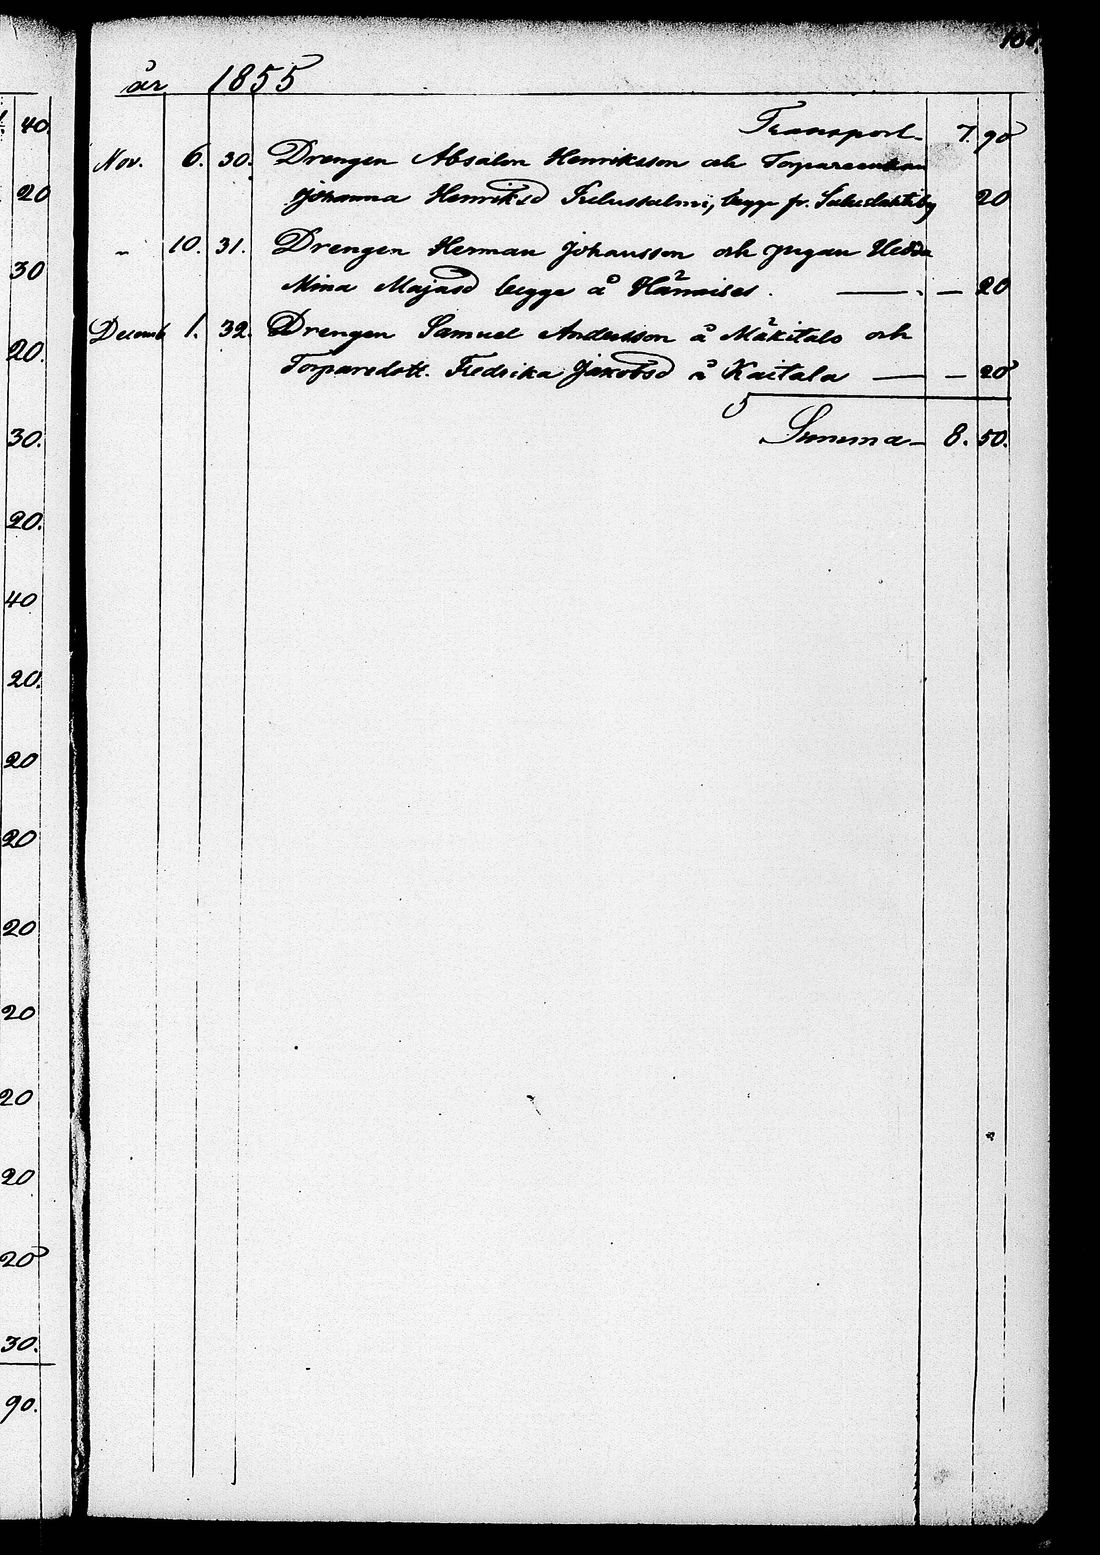 år 1855
Transport 7. 90
Nov. 6. 30. Drengen Absalon Henriksson och Torpareenkan
Johanna Henriksd begge fr. 20
" 10. 31. Drengen Herman Johansson och Pigan Hedda
Mina Majasd begge å Hännises. — — 20
Decemb 1. 32. Drengen Samuel Andersson å Mäkitalo och
Torparedott. Fredrika Jakobsd å Kaitala — — 20
Summa 8. 50.
40.
20
30
20.
30.
20.
40
20.
20
20
20
20
20
20
20
30.
90.